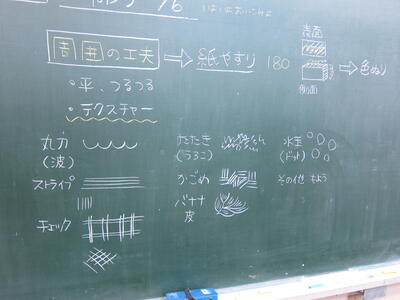 周囲の工夫 ⇒ 紙やすり 180 ⇒ 色ぬり
表面
・平、つるつる
・テクスチャー
丸刀
(波)
たたき
(うろこ)
水玉
(ドット)
ストライプ
かごめ
その他 もよう
チェック
バナナ
皮